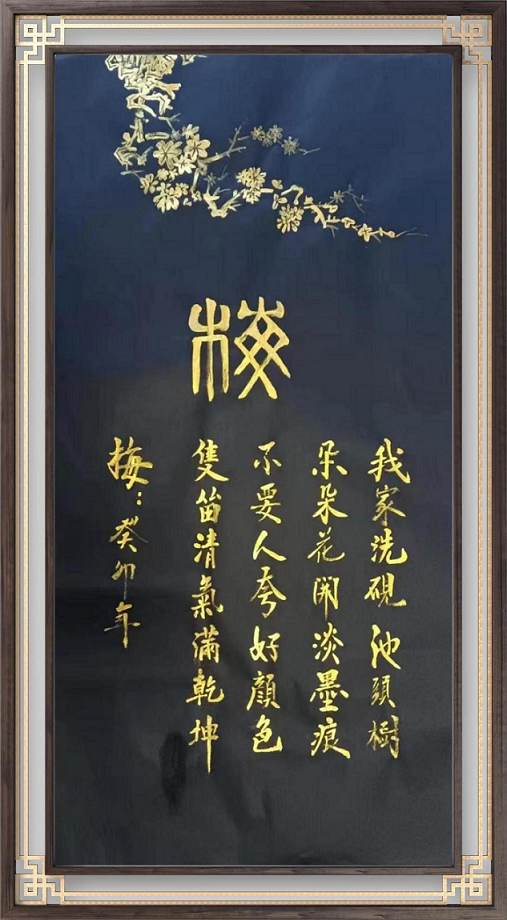 梅
我家洗硯池頭樹
朵朵花開淡墨痕
不要人夸好顏色
隻留清氣滿乾坤
梅：癸卯年